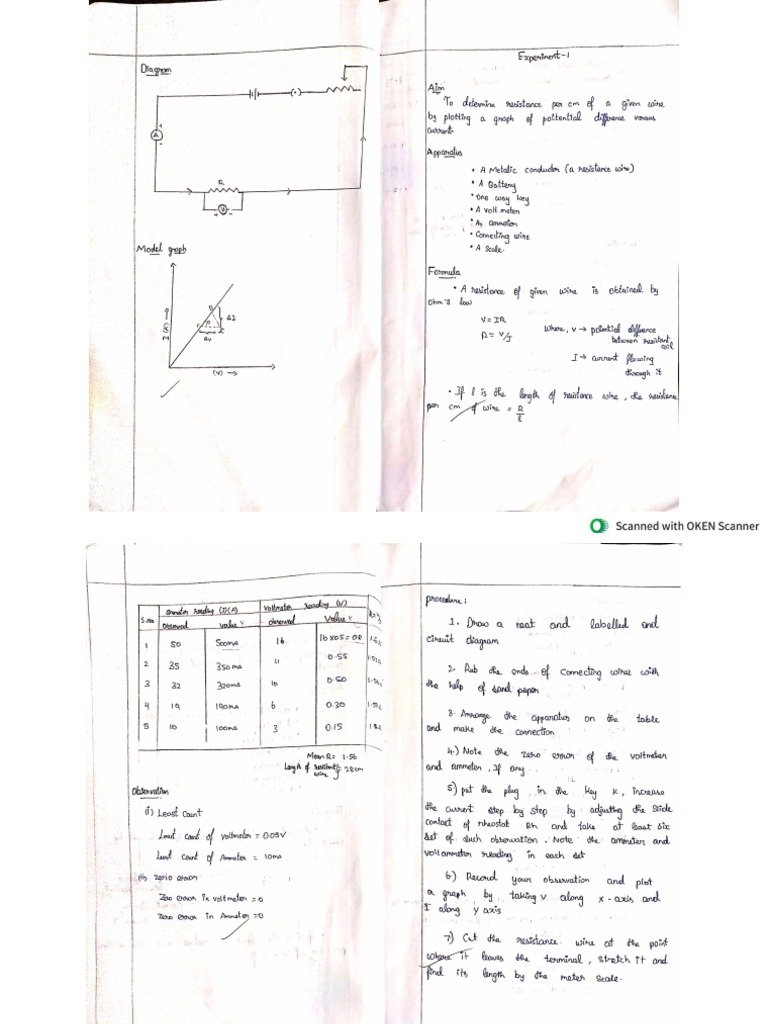 Diagram
A
R
V
Model graph
I
B
ΔI
ΔV
(V) →
Experiment-1
Aim
To detemine resistance per cm of a given wire
by plotting a graph of pottential difference versus
current
Apparatus
• A Metalic conductor (a resistance wire)
• A Battery
• One way key
• A volt meter
• An ammeter
• Connecting wire
• A Scale.
Formula
• A resistance of given wire is obtained by
Ohm's law
V = IR
R = V/I
Where, V → potential difference
between resistant
coil
I → current flowing
through it
• If l is the length of resistance wire, the resistance
per cm of wire = R/l
Scanned with OKEN Scanner
S.No
ammeter reading (I)(A)
voltmeter reading (V)
observed value observed value
1 50 500ma 16 16x05=08
2 35 350ma 11 0.55
3 32 320ma 10 0.50
4 19 190ma 6 0.30
5 10 100ma 3 0.15
Mean R = 1.56
Length of resistant
wire = 28cm
Observation
(i) Least Count
Least count of voltmeter = 0.05V
Least count of Ammeter = 10ma
(ii) Zerio error
Zero error in voltmeter = 0
Zero error in Ammeter = 0
procedure:
1. Draw a neat and labelled and
circuit diagram
2. Rub the ends of connecting wires with
the help of sand paper
3. Arrange the apparatus on the table
and make the connection
4.) Note the zero error of the voltmeter
and ammeter, If any
5) put the plug in the key K, increase
the current step by step by adjusting the slide
contact of rheostat Rh and take at least six
set of such observation. Note the ammeter and
volt ammeter reading in each set
6) Record your observation and plot
a graph by taking V along x-axis and
I along y axis
7) Cut the resistance wire at the point
where it leaves the terminal, stretch it and
find its length by the meter scale.